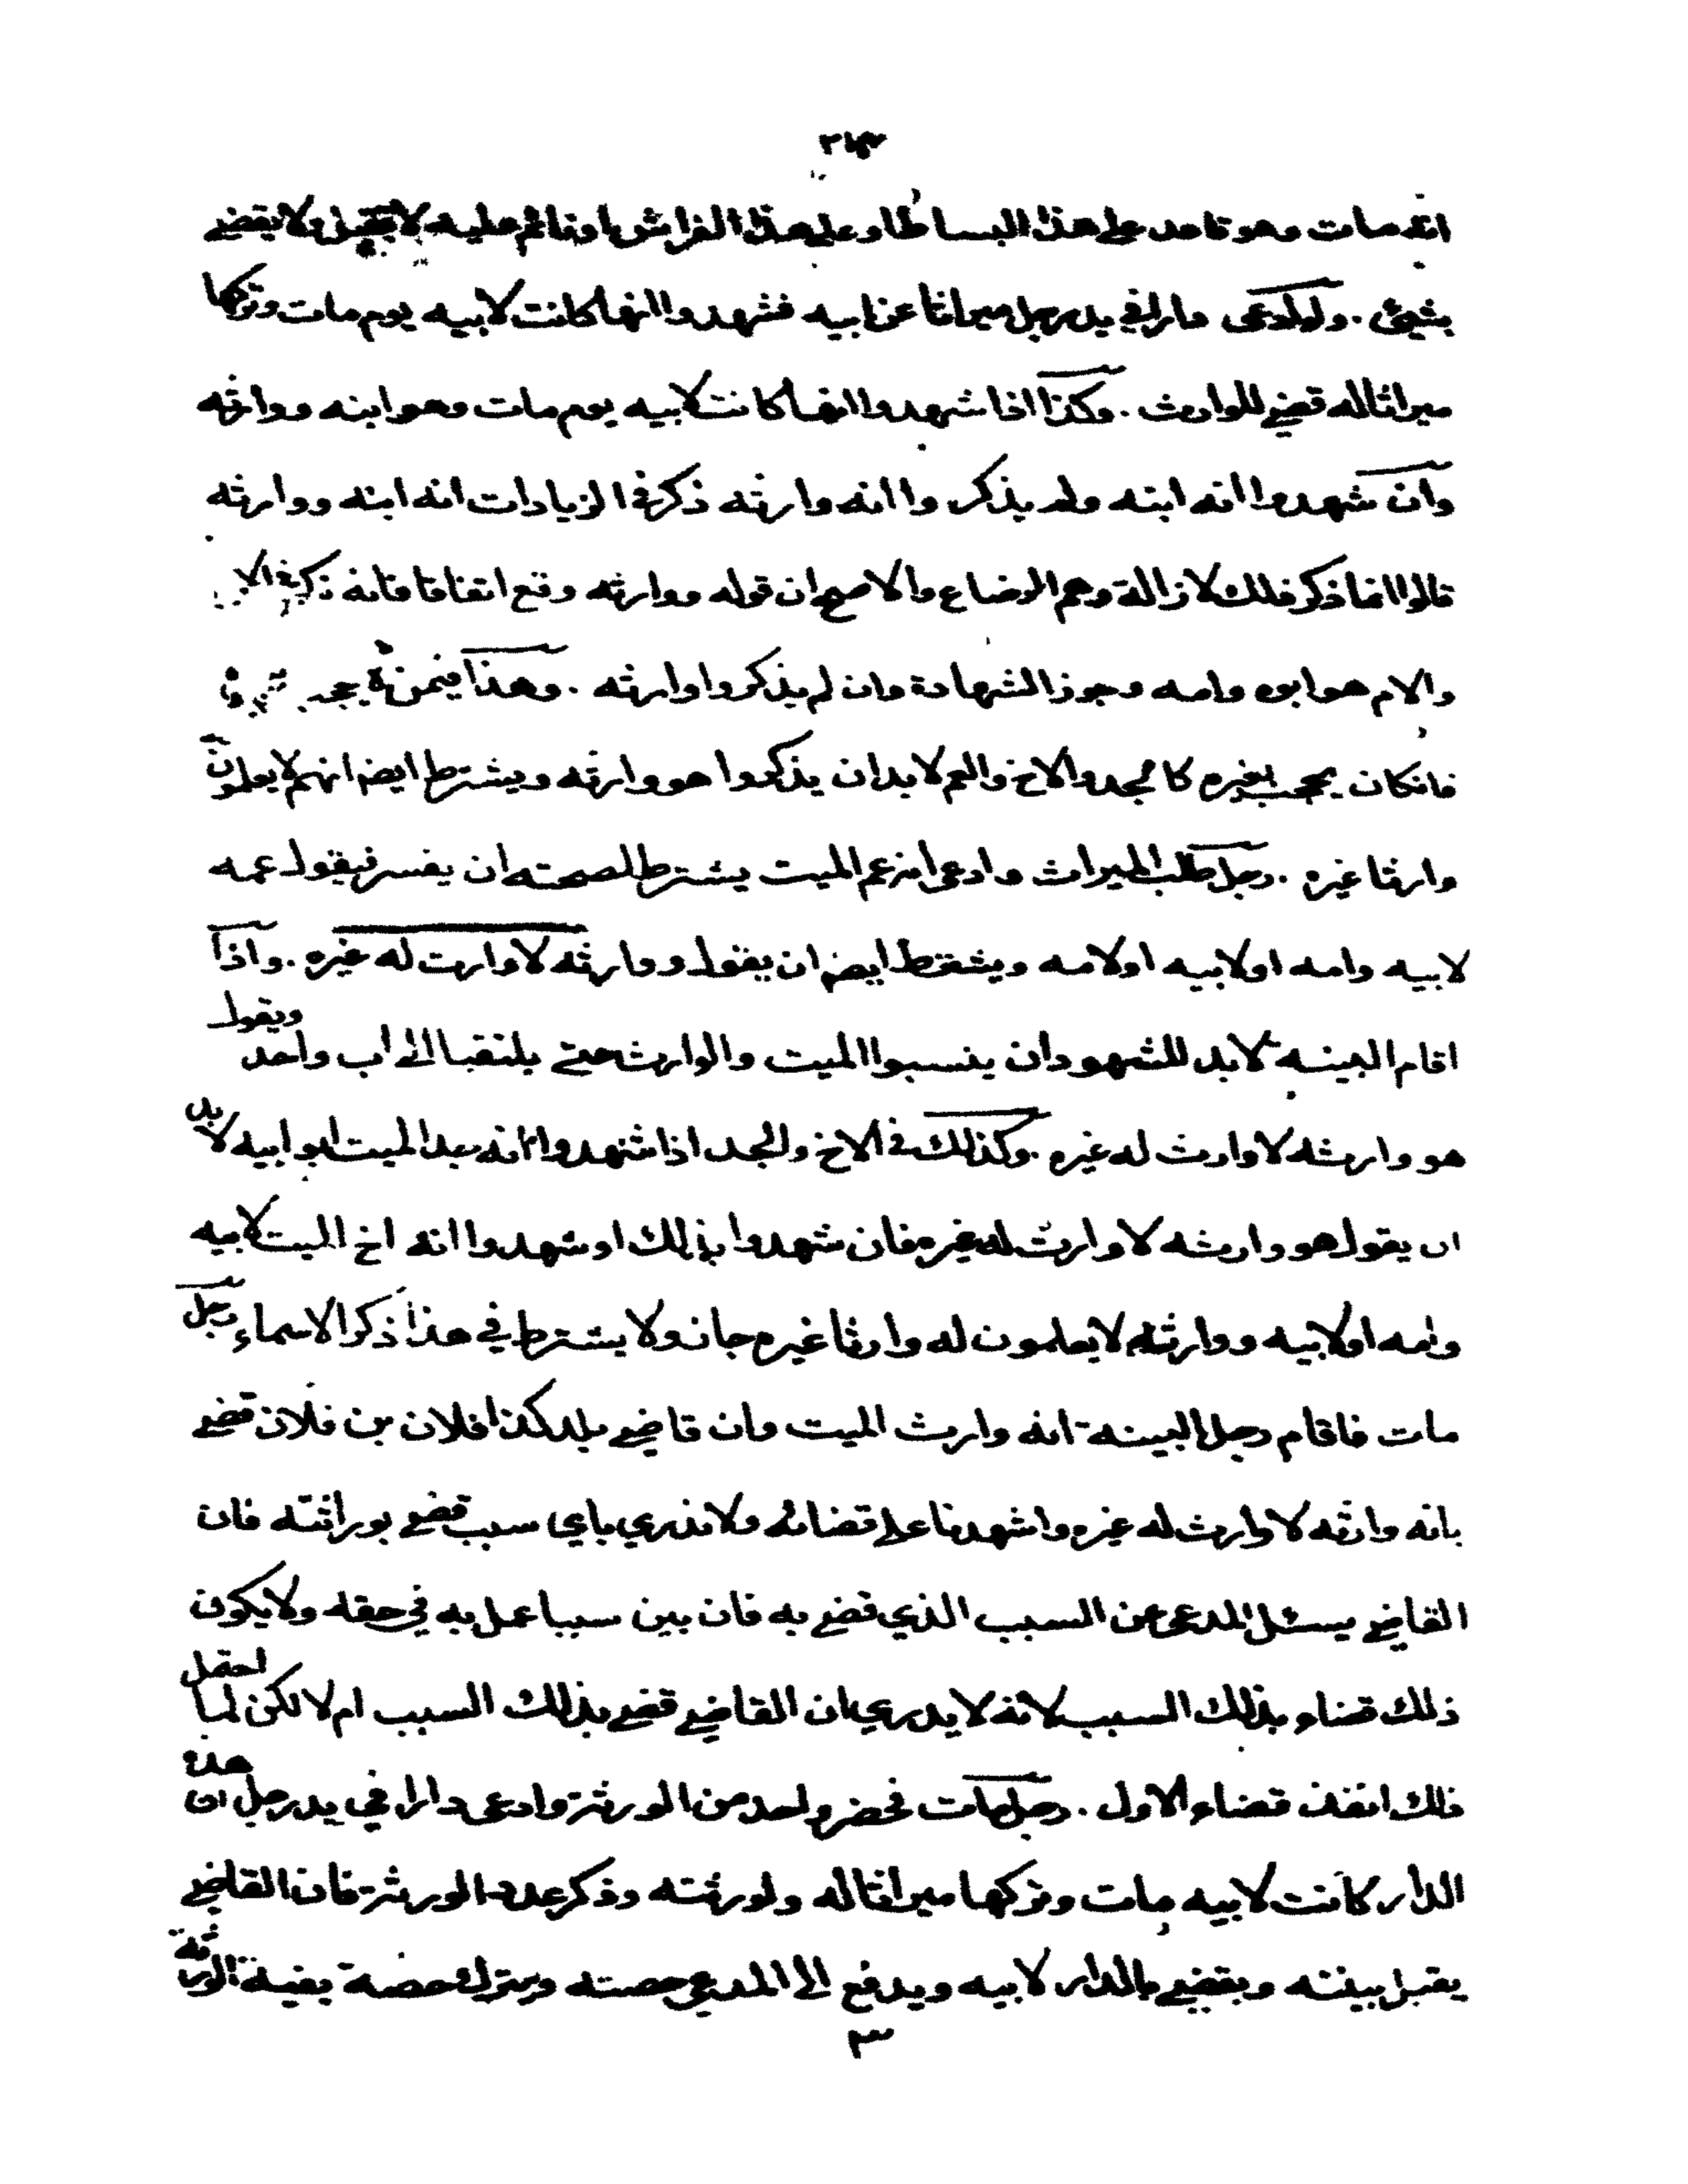 انه مات وهو قاعد على هذا البساط او على هذا الفراش او نائم عليه لا يقبل ولا يقضي
بشيئ . ولو ادعى دارا في يد رجل ميراثا عن ابيه فشهدوا انها كانت لابيه يوم مات وتركها
ميراثا له قضي للوارث . وكذا اذا شهدوا انها كانت لابيه يوم مات وهو ابنه ووارثه
وان شهدوا انه ابنه ولم يذكر وا انه وارثه ذكر في الزيادات انه ابنه ووارثه
قالوا انما ذكر ذلك لازالة وهم الرضاع والاصح ان قوله ووارثه وقع اتفاقا فانه ذكر في الا
والام هو ابوه وامه وجوز الشهادة وان لم يذكروا وارثه . وهذا فيمن
فانكان يحجب بغيره كالجد والاخ والعم لا بد ان يذكروا هو وارثه ويشترط ايضا انهم لا يعلمون
وارثا غيره . رجل طلب الميراث وادعى انه عم الميت يشترط لصحته ان يفسر فيقول عمه
لابيه وامه او لابيه او لامه ويشترط ايضا ان يقول ووارثه لا وارث له غيره . واذا
اقام البينة لا بد للشهود ان ينسبوا الميت والوارث حتى يلتقيا الى اب واحد ويقول
هو وارثه لا وارث له غيره . وكذلك في الاخ والجد اذا شهدوا انه جد الميت ابو ابيه لا بد
ان يقول هو وارثه لا وارث له غيره فان شهدوا بذلك او شهدوا انه اخ الميت لابيه
وامه او لابيه ووارثه لا يعلمون له وارثا غيره جاز ولا يشترط في هذا ذكر الاسماء رجل
مات فاقام رجل البينة انه وارث الميت وان قاضي بلد كذا فلان بن فلان قضى
بانه وارثه لا وارث له غيره واشهدنا على قضائه ولا ندري باي سبب قضى بوراثته فان
القاضي يسئل المدعى عن السبب الذي قضى به فان بين سببا عمل به في حقه ولا يكون
ذلك قضاء بذلك السبب لانه لا يدري ان القاضي قضى بذلك السبب ام لا لكن لما احتمل
ذلك انفذ قضاء الاول . رجل مات فحضر واحد من الورثة وادعى دارا في يد رجل ان هذه
الدار كانت لابيه مات وتركها ميراثا له ولورثته وذكر عدد الورثة فان القاضي
يقبل بينته ويقضي بالدار لابيه ويدفع الى المدعي حصته ويترك حصة بقية الورثة
٣